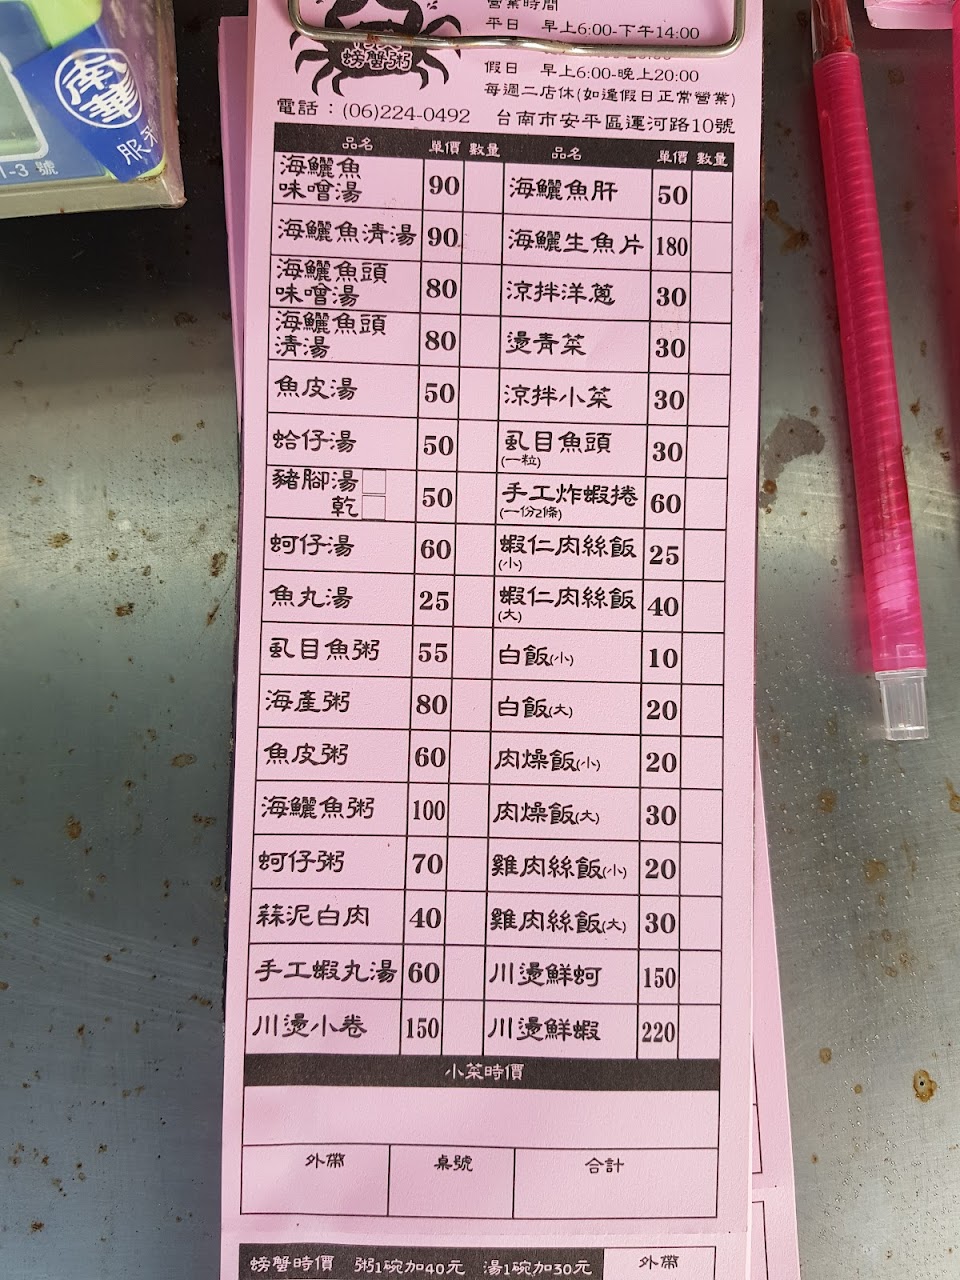 營業時間
平日 早上6:00-下午14:00
螃蟹粥
假日 早上6:00-晚上20:00
每週二店休(如逢假日正常營業)
電話：(06)224-0492 台南市安平區運河路10號
南華
服
1-3 號
品名 單價 數量 品名 單價 數量
海鱺魚
味噌湯 90 海鱺魚肝 50
海鱺魚清湯 90 海鱺生魚片 180
海鱺魚頭
味噌湯 80 涼拌洋蔥 30
海鱺魚頭
清湯 80 燙青菜 30
魚皮湯 50 涼拌小菜 30
蛤仔湯 50 虱目魚頭 30
(一粒)
豬腳湯
乾 50 手工炸蝦捲 60
(一份2條)
蚵仔湯 60 蝦仁肉絲飯 25
(小)
魚丸湯 25 蝦仁肉絲飯 40
(大)
虱目魚粥 55 白飯(小) 10
海產粥 80 白飯(大) 20
魚皮粥 60 肉燥飯(小) 20
海鱺魚粥 100 肉燥飯(大) 30
蚵仔粥 70 雞肉絲飯(小) 20
蒜泥白肉 40 雞肉絲飯(大) 30
手工蝦丸湯 60 川燙鮮蚵 150
川燙小卷 150 川燙鮮蝦 220
小菜時價
外帶 桌號 合計
螃蟹時價 粥1碗加40元 湯1碗加30元 外帶